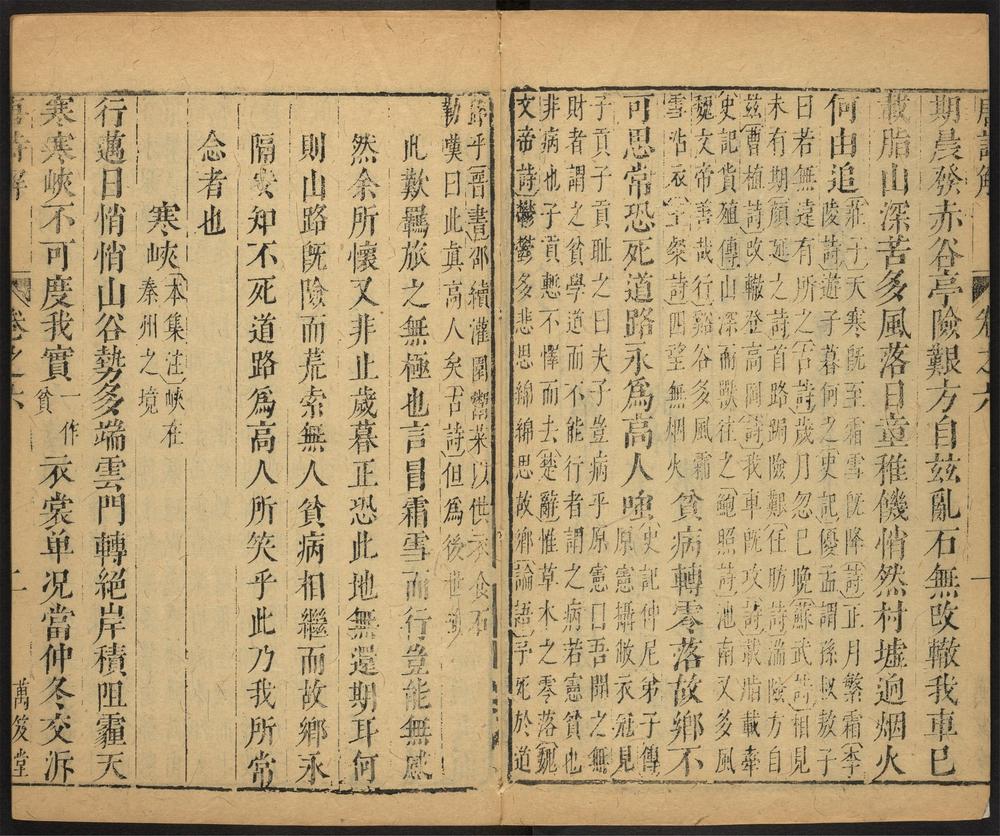 唐詩解 卷之六 一
期晨發赤谷亭險艱方自茲亂石無改轍我車已
載脂山深苦多風落日童稚饑悄然村墟迥烟火
何由追
莊子天寒既至霜雪既降詩正月繁霜李
陵詩遊子暮何之史記優孟謂孫叔敖子
曰若無遠有所之古詩歲月忽已晚蘇武詩相見
未有期顔延之詩首路跼險艱任昉詩湍險方自
茲曹植詩改轍登高岡詩我車既攻詩載脂載牽
史記貨殖傳山深而獸往之鮑照詩池南又多風
魏文帝善哉行谿谷多風霜
雪沾衣王粲詩四望無烟火
貧病轉零落故鄉不
可思常恐死道路永爲高人嗤
史記仲尼弟子傳
原憲攝敝衣冠見
子貢子貢耻之曰夫子豈病乎原憲曰吾聞之無
財者謂之貧學道而不能行者謂之病若憲貧也
非病也子貢慙不懌而去楚辭惟草木之零落魏
文帝詩鬱鬱多悲思綿綿思故鄉論語予死於道
路乎晋書邵續灌園鬻菜以供衣食石
勒嘆曰此真高人矣古詩但爲後世嗤
此歎羈旅之無極也言冒霜雪而行豈能無感
然余所懷又非止歲暮正恐此地無還期耳何
則山路既險而荒索無人貧病相繼而故鄉永
隔安知不死道路爲高人所笑乎此乃我所常
念者也
寒峽
本集注峽在
秦州之境
行邁日悄悄山谷勢多端雲門轉絕岸積阻霾天
寒寒峽不可度我實
一作
貧
衣裳单况當仲冬交泝
唐詩解 卷之六 二 萬笈堂